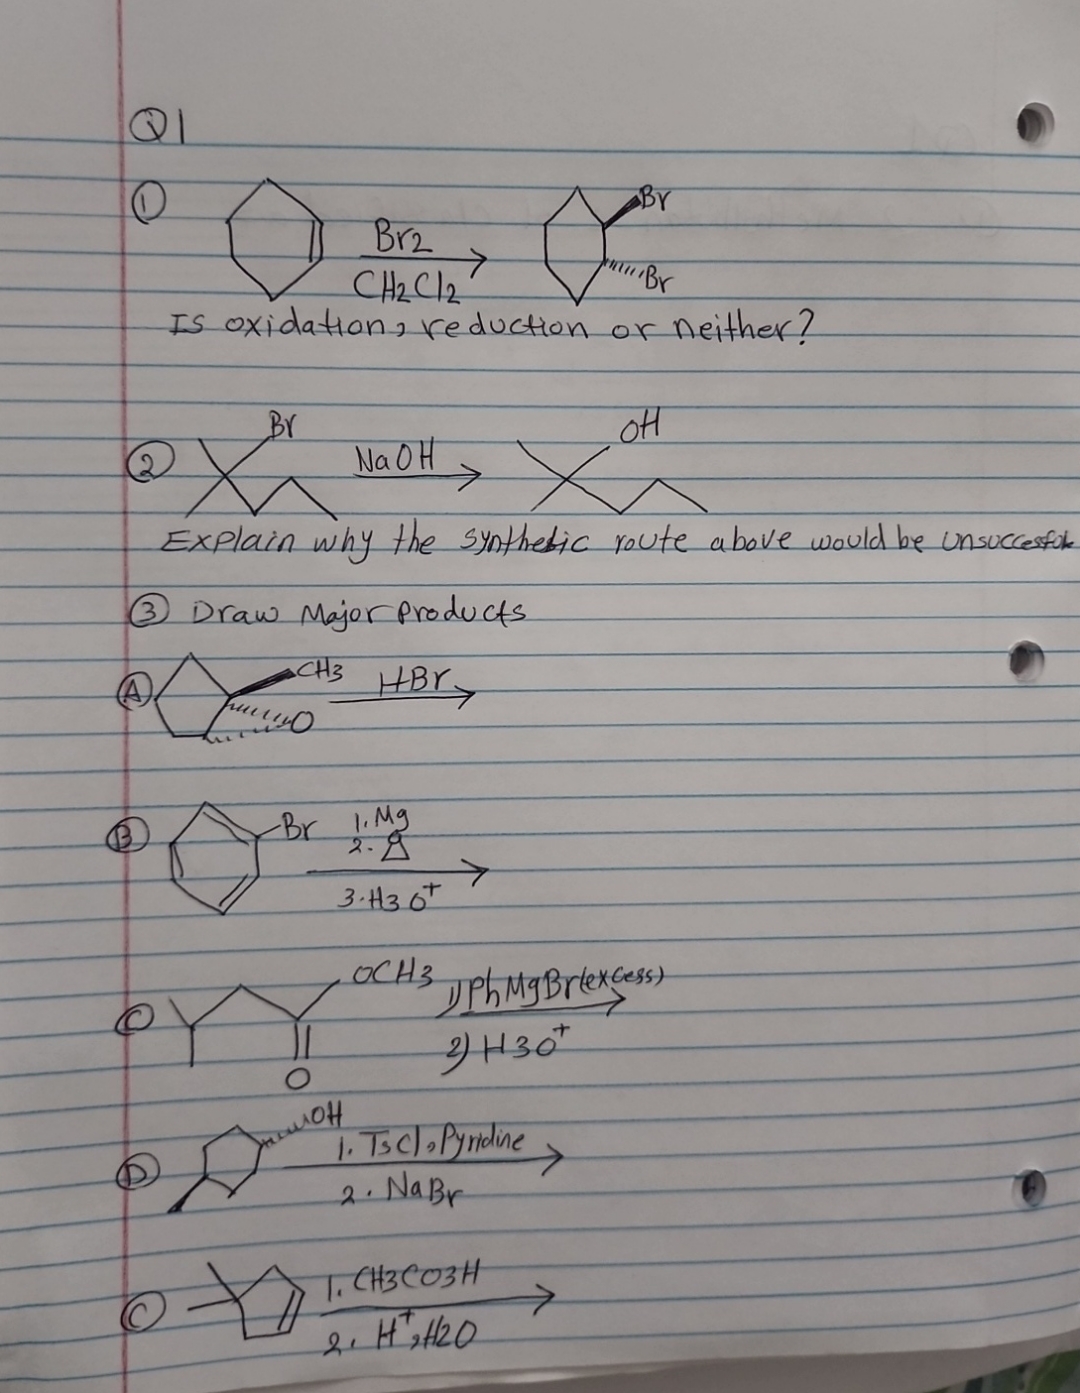 Q1
① Br
Br2
CH2Cl2
Br
Is oxidation, reduction or neither?
Br OH
② NaOH
Explain why the synthetic route above would be unsuccessful
③ Draw Major products
Ⓐ CH3 HBr
O
Ⓑ Br 1. Mg
2.
3. H3O+
OCH3 1) PhMgBr (excess)
Ⓒ 2) H3O+
O
OH
Ⓓ 1. TsCl, Pyridine
2. NaBr
Ⓒ 1. CH3CO3H
2. H+, H2O